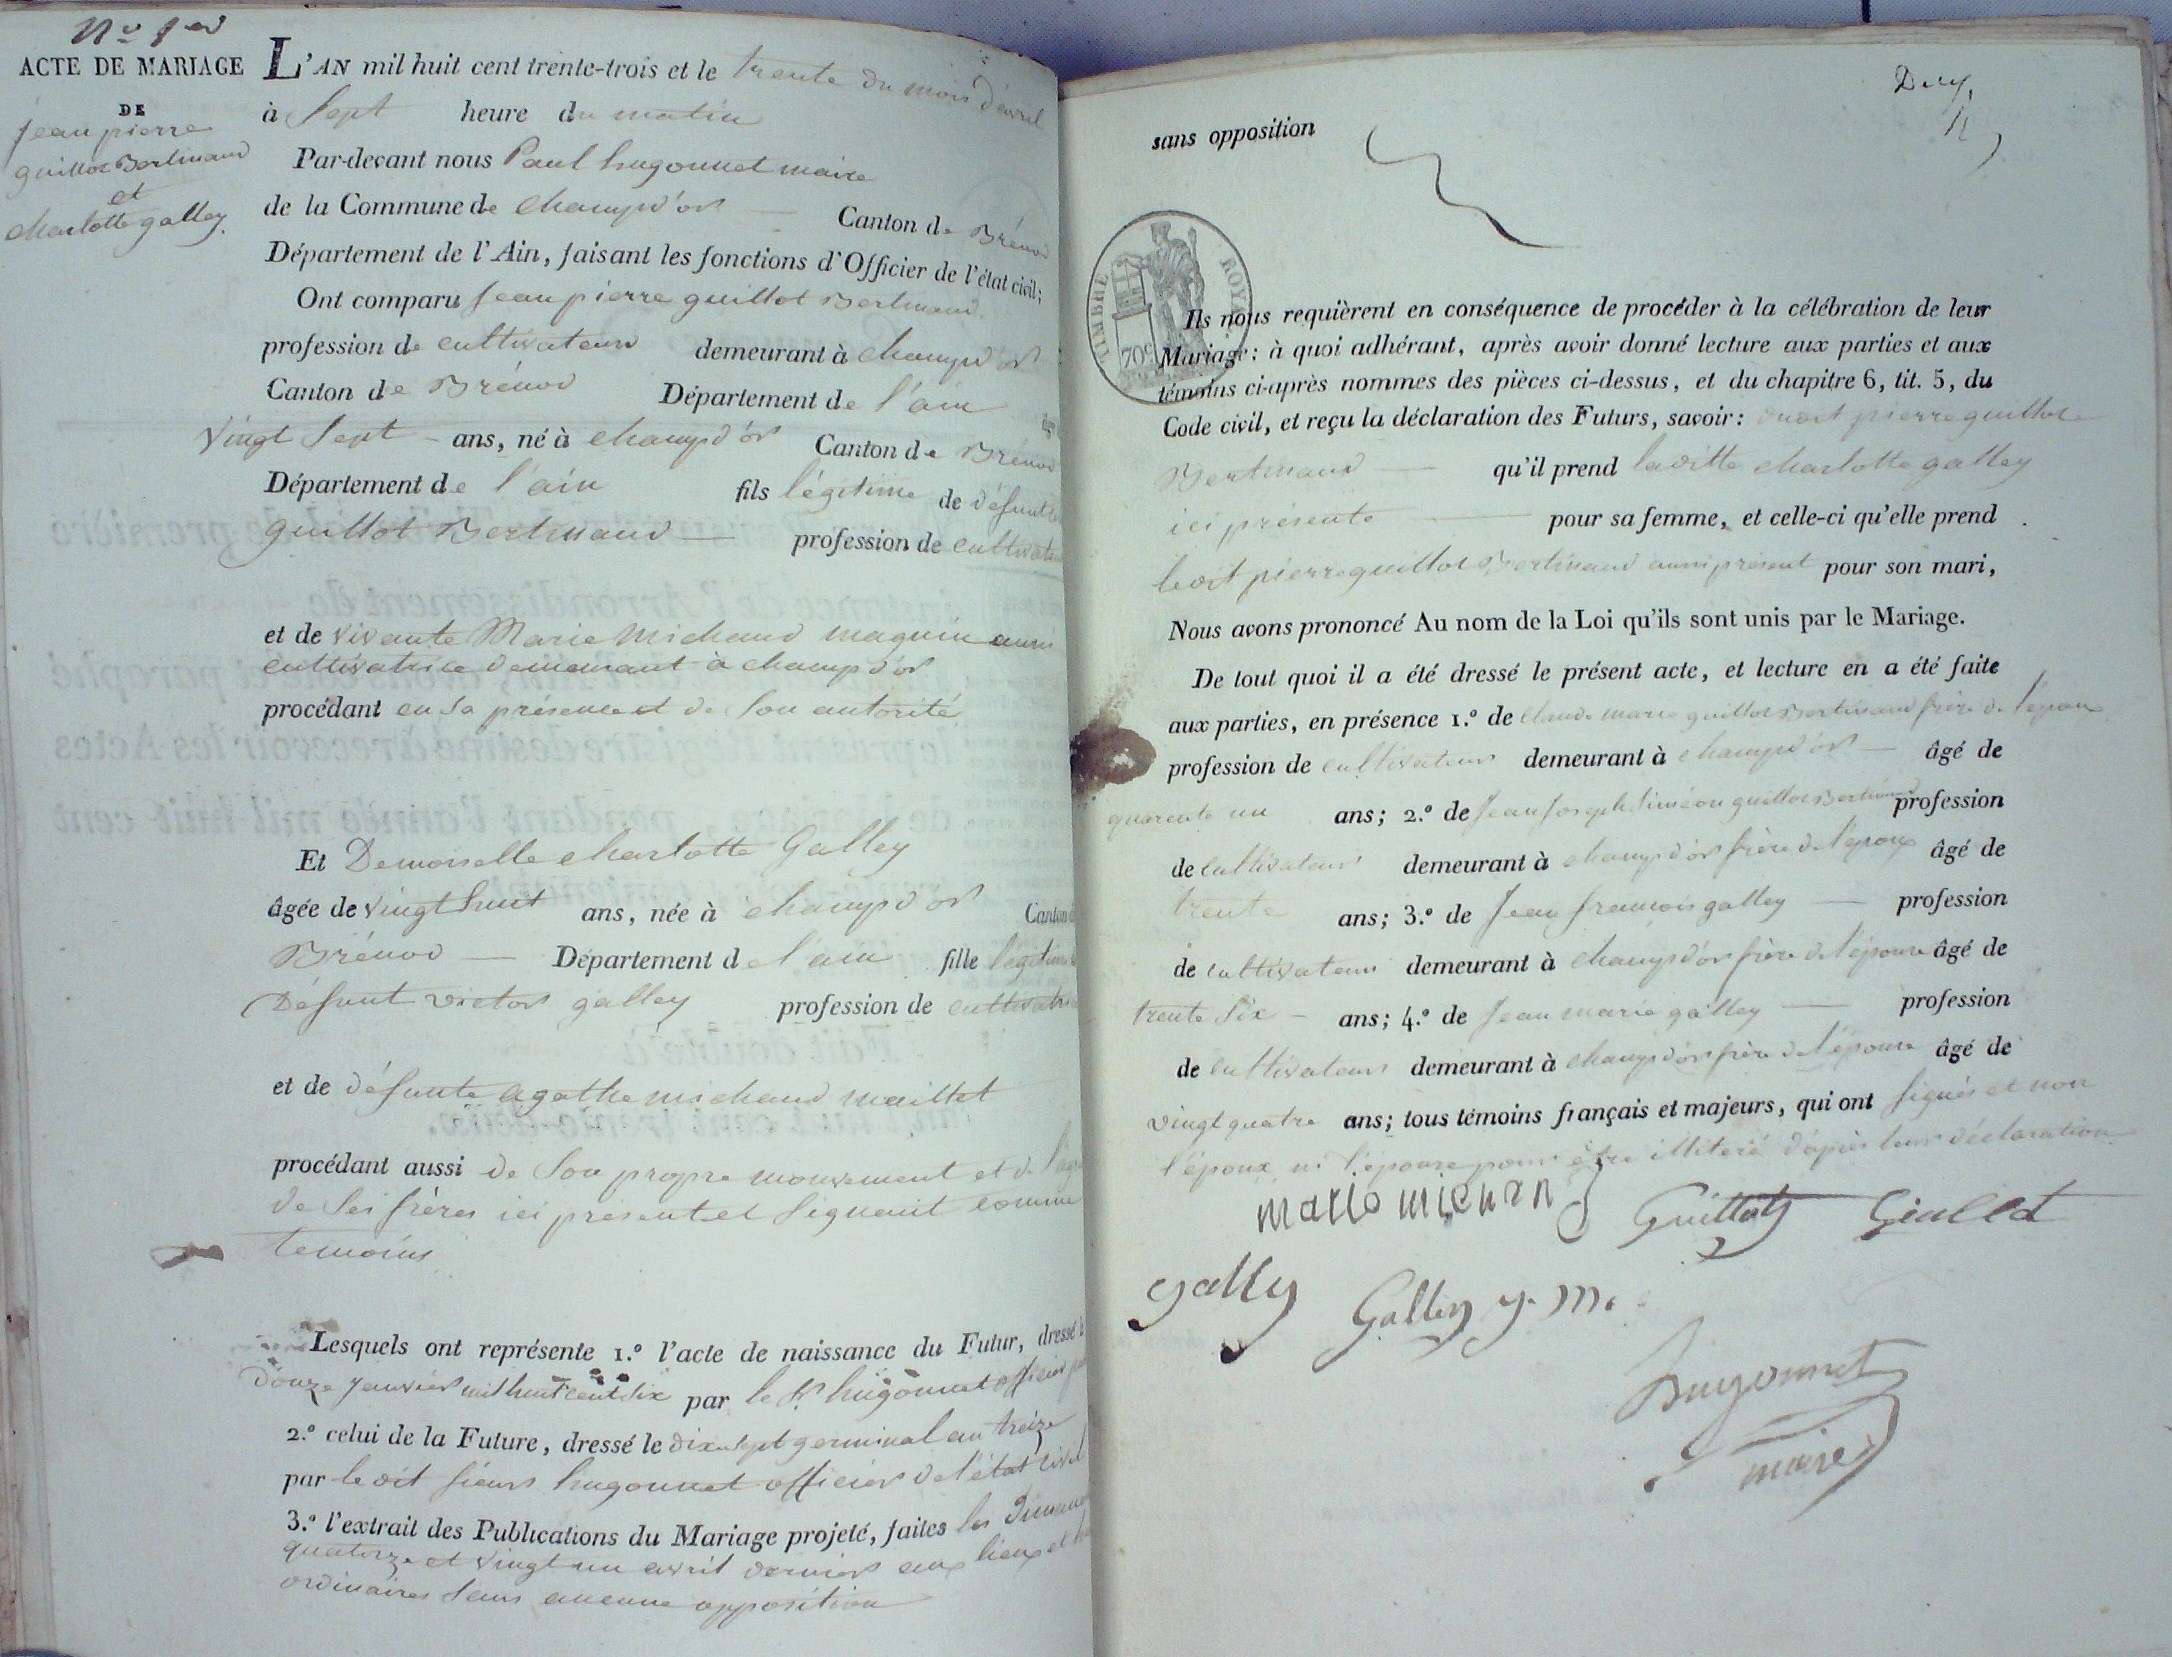 N.o 1er
ACTE DE MARIAGE
DE
jean pierre
guillot Bertinand
et
charlotte galley.
L'AN mil huit cent trente-trois et le trente du mois d'avril
à Sept heure du matin
Par-devant nous Paul hugonnet maire
de la Commune de champd'or Canton de Brénod
Département de l'Ain, faisant les fonctions d'Officier de l'état civil;
Ont comparu jean pierre guillot Bertinand
profession de cultivateur demeurant à champd'or
Canton de Brénod Département de l'ain
vingt Sept ans, né à champd'or Canton de Brénod
Département de l'ain fils légitime de défunt
guillot Bertinand profession de cultivateur
et de vivante Marie Michaud maguin aussi
cultivatrice demeurant à champd'or
procédant en sa présence et de son autorité
Et Demoiselle charlotte Galley
âgée de vingt huit ans, née à champd'or Canton d
Brénod Département de l'ain fille légitime
Défunt victor galley profession de
et de défunte agathe michaud maillet
procédant aussi de son propre mouvement et de
de ses frères ici présent et signant comme
temoins
Lesquels ont représente 1.º l'acte de naissance du Futur, dressé le
douze janvier mil huit cent six par le Sr hugonnet officier
2.º celui de la Future, dressé le dix sept germinal an treize
par le dit sieur hugonnet officier de l'état civil
3.º l'extrait des Publications du Mariage projeté, faites les Dimanches
quatorze et vingt un avril dernier aux lieux et
ordinaires sans aucune opposition
Deux
sans opposition
TIMBRE ROYAL
70c
Ils nous requièrent en conséquence de procéder à la célébration de leur
Mariage; à quoi adhérant, après avoir donné lecture aux parties et aux
témoins ci-après nommes des pièces ci-dessus, et du chapitre 6, tit. 5, du
Code civil, et reçu la déclaration des Futurs, savoir: pierre guillot
Bertinand qu'il prend laditte charlotte galley
ici présente pour sa femme, et celle-ci qu'elle prend
ledit pierre guillot Bertinand aussi présent pour son mari,
Nous avons prononcé Au nom de la Loi qu'ils sont unis par le Mariage.
De tout quoi il a été dressé le présent acte, et lecture en a été faite
aux parties, en présence 1.º de claude marie guillot Bertinand frère de l'époux
profession de cultivateur demeurant à champd'or âgé de
quarente un ans; 2.º de Jean joseph Siméon guillot Bertinand profession
de cultivateur demeurant à champd'or frère de l'époux âgé de
trente ans; 3.º de Jean francois galley profession
de cultivateur demeurant à champd'or frère de l'épouse âgé de
trente Six ans; 4.º de Jean marie galley profession
de cultivateur demeurant à champd'or frère de l'épouse âgé de
vingt quatre ans; tous témoins français et majeurs, qui ont signés et non
l'époux ni l'épouse pour être illiteré d'après leur déclaration
Guillot
gally
Galley j. m.
hugonnet
maire